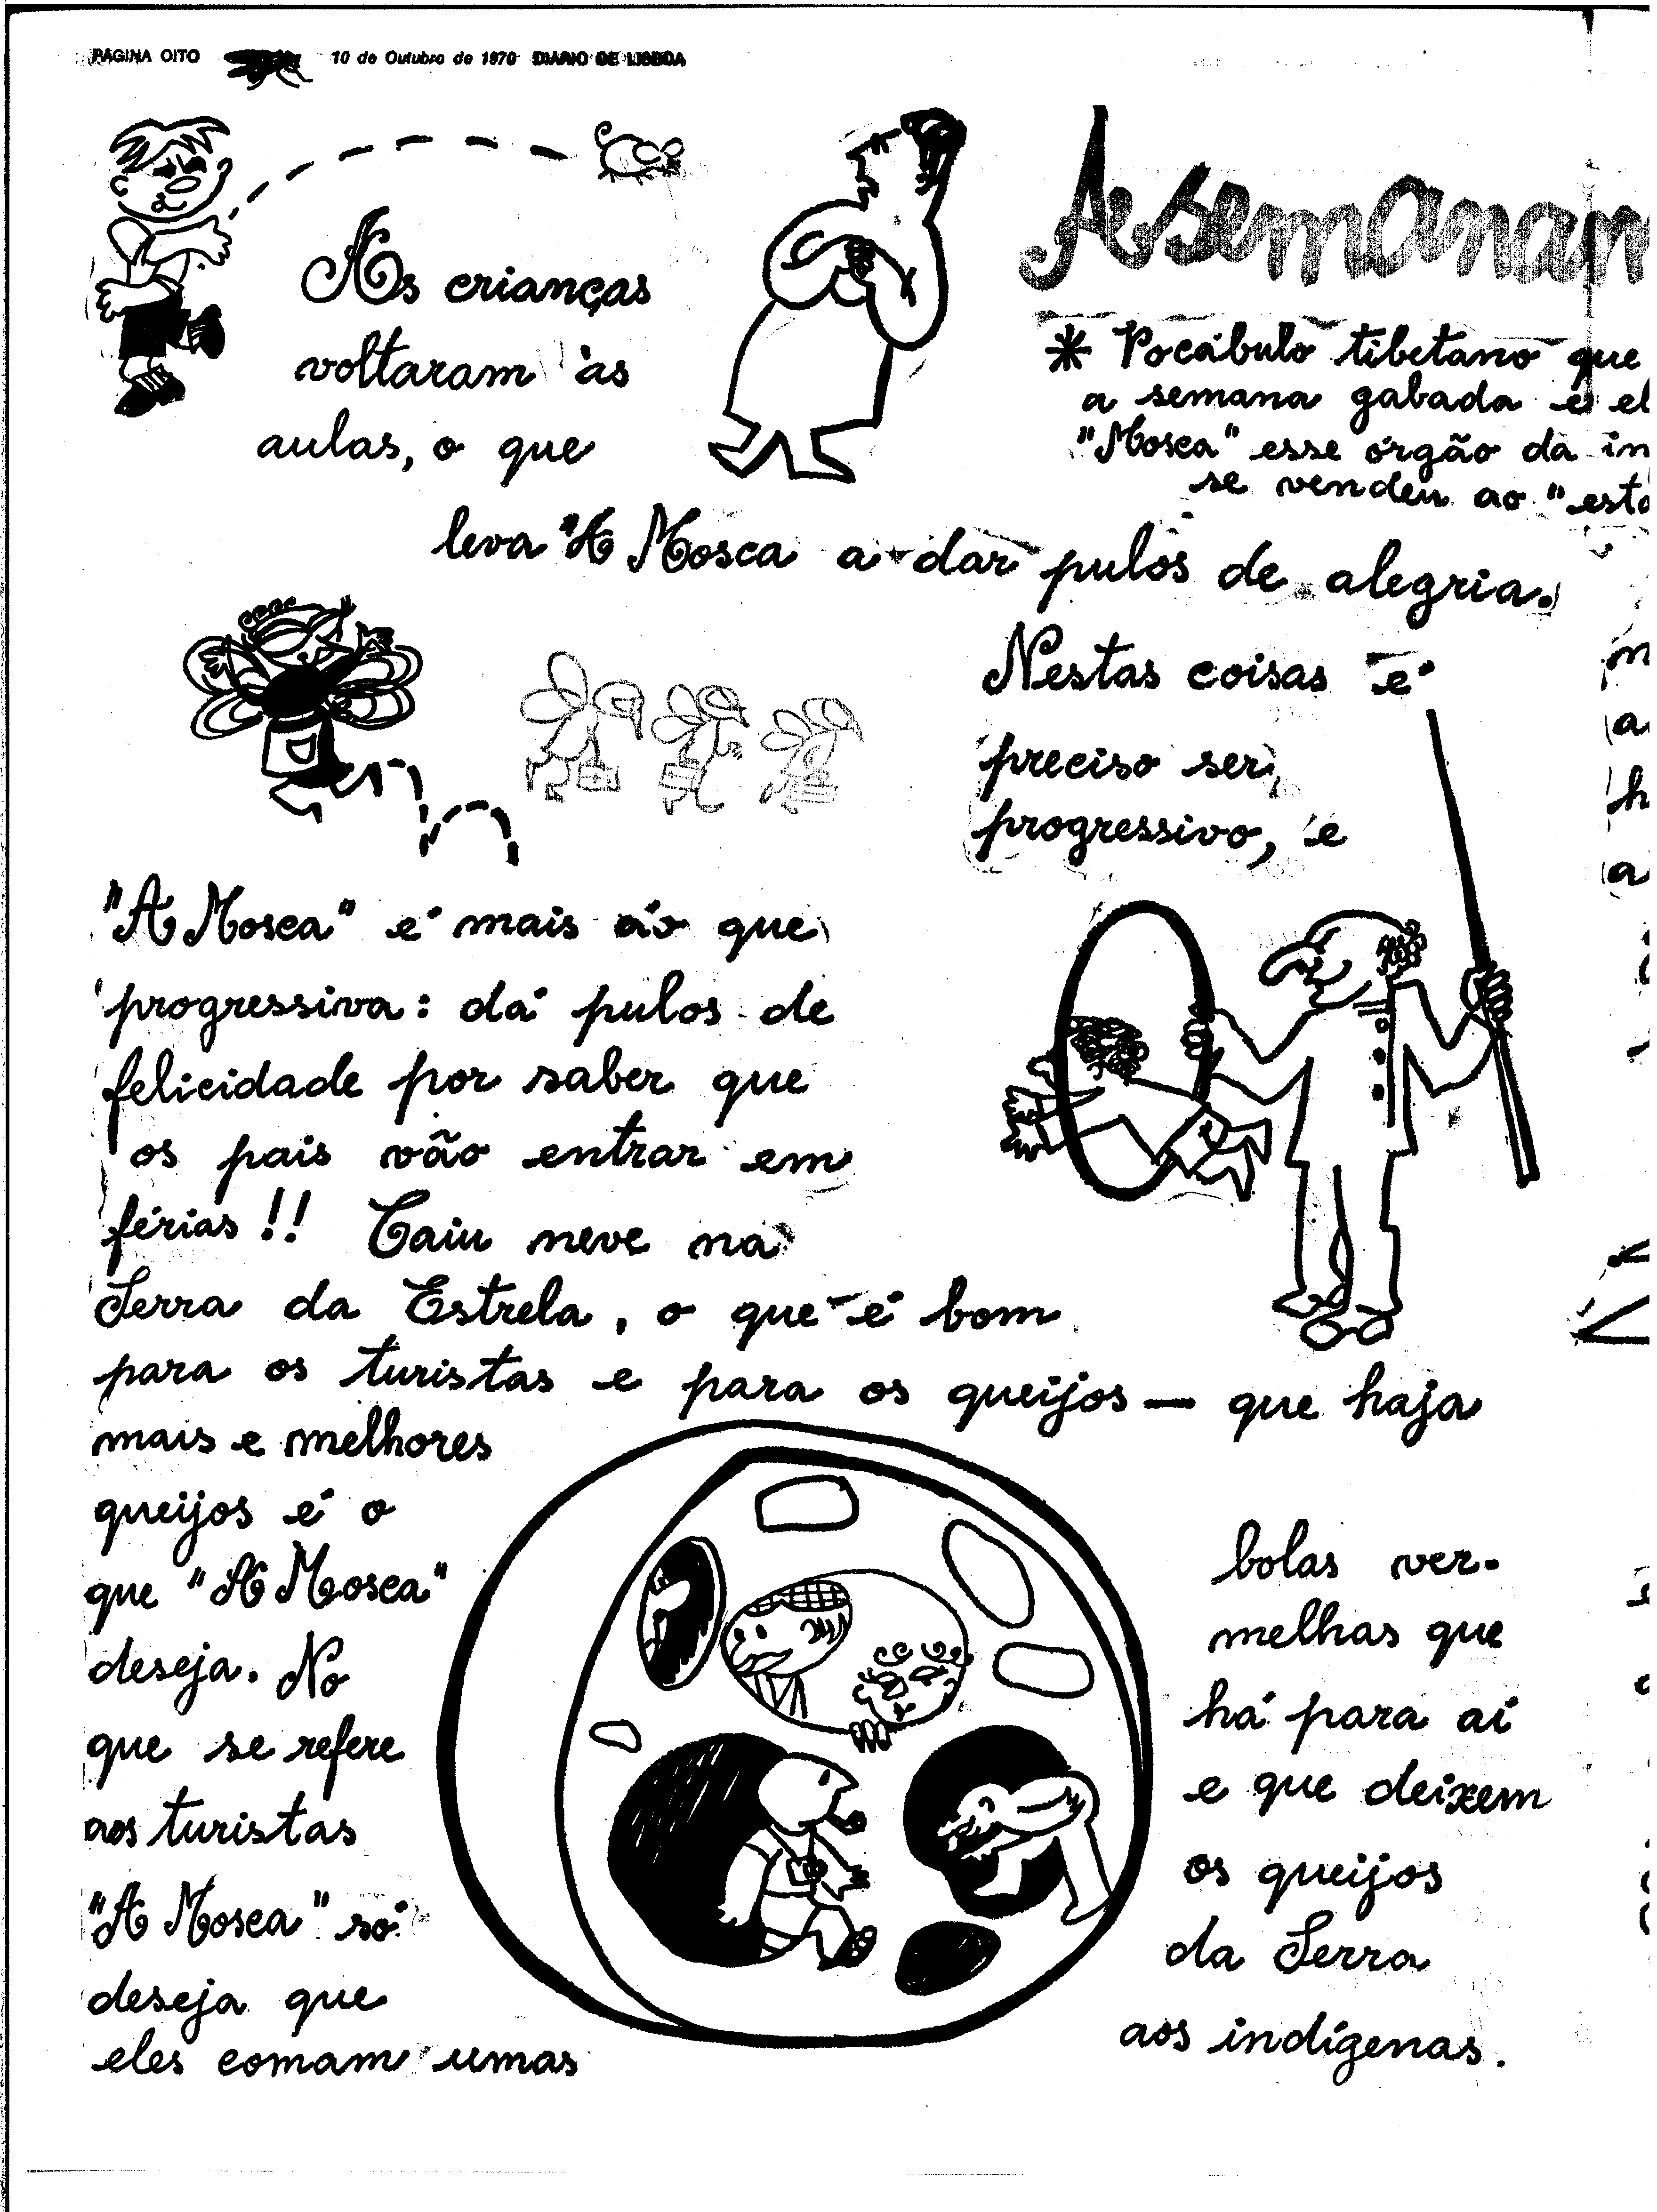 PÁGINA OITO 10 de Outubro de 1970 DIARIO DE LISBOA
A semana
* Vocábulo tibetano que
a semana gabada e
"Mosca" esse órgão da
se vendeu ao
As crianças
voltaram às
aulas, o que
leva "A Mosca a dar pulos de alegria.
Nestas coisas é
preciso ser
progressivo, e
"A Mosca" é mais do que
progressiva: dá pulos de
felicidade por saber que
os pais vão entrar em
férias!! Caiu neve na
Serra da Estrela, o que é bom
para os turistas e para os queijos — que haja
mais e melhores
queijos é o
que "A Mosca"
deseja. No
que se refere
aos turistas
"A Mosca" só
deseja que
eles comam umas
bolas ver-
melhas que
há para aí
e que deixem
os queijos
da Serra
aos indígenas.